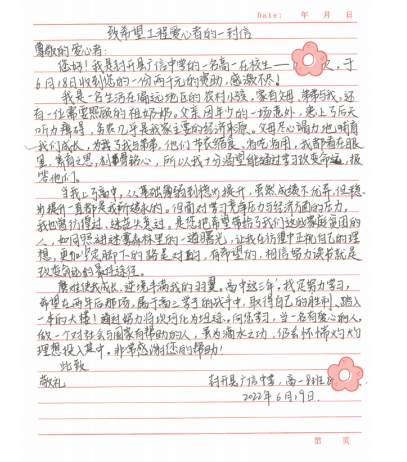 Date: 年 月 日
致希望工程爱心者的一封信
尊敬的爱心者：
您好！我是封开县广信中学的一名高一在校生一 ，于
6月18日收到您的一份两千元的资助，感激不尽！
我是一名生活在偏远地区的农村小孩，家有父母，弟弟与我，还
有一位需要照顾的祖奶奶。父亲因年少的一场意外，患上了后天
听力障碍，务农几乎是我家主要的经济来源。父母尽心竭力地哺育
我们成长，为养了我与弟弟，他们节衣缩食，省吃俭用，我都看在眼
里，养育之恩，刻骨铭心，所以我十分渴望能通过学习改变命运，报
答他们。
当我上了高中，从基础薄弱到稳步提升，虽然成绩不优异，但稳
步提升一直都是我所继承的。但面对学业压力与经济方面的压力，
我也曾彷徨过，迷茫失走过。是您把希望带给了我们这些家庭贫困的
人，如同照进迷雾森林里的一道曙光，让我在彷徨中正视自己的理
想，更加坚定脚下的路是对的，有希望的，相信努力读书就是
改变命运的最佳途径。
磨难使我成长，逆境丰满我的羽翼。高中这三年，我定努力学习，
希望在两年后那场，属于高三学子的战斗中，取得自己的胜利，踏入
一本的大楼！通过努力将坎坷化为坦途。向您学习，当一名有爱心的人，
做一个对社会与国家有帮助的人，虽为滴水之功，仍会怀情灼灼
理想投入其中。非常感谢您的帮助！
此致
敬礼
封开县广信中学，高一 班
2022年6月19日
第 页